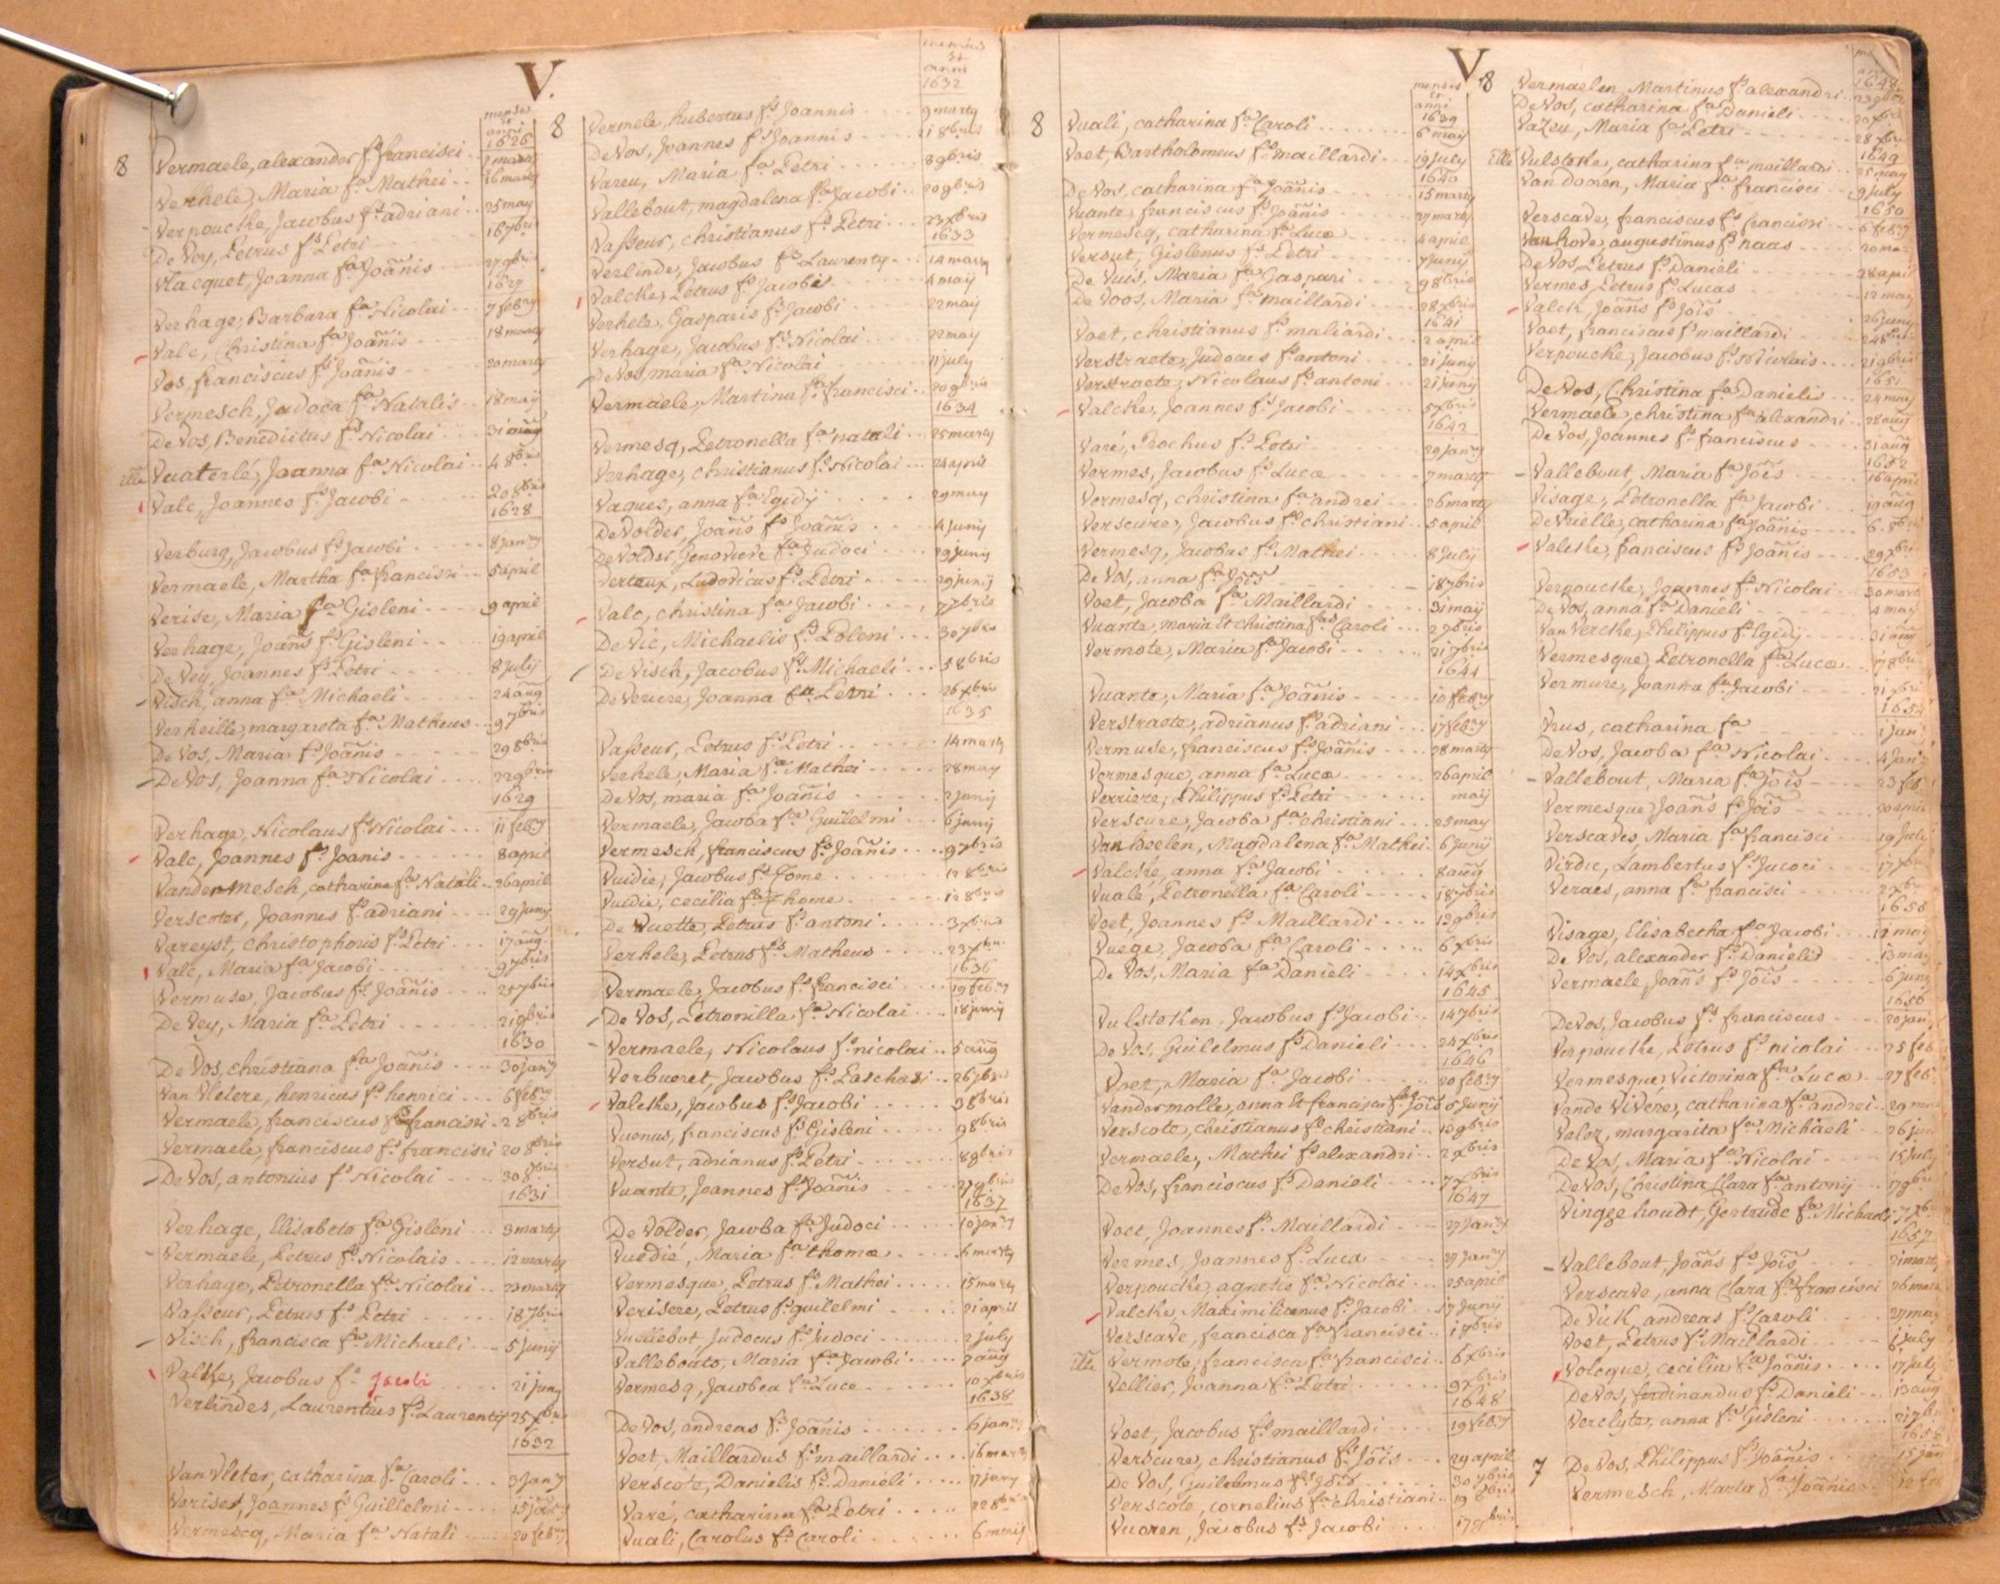 V.
menses
et
anni
1626
8 Vermaele, alexander fs francisci 7 martij
Verhele, Maria fa Mathei 16 martij
Verpoucke, Jacobus fs adriani 25 may
De Vey, Petrus fs Petri 16 7bris
Vlacquet, Joanna fa Joañis 27 9bris
1627
Verhage, Barbara fa Nicolai 7 feb7
Valc, Christina fa Joañis 18 martij
Vos, franciscus fs Joañis 20 martij
Vermesch, Judoca fa Natalis 18 maij
De Vos, Benedictus fs Nicolai 31 aug
Vuaterlé, Joanna fa Nicolai 4 8bris
Valc, Joannes fs Jacobi 20 8bris
1628
Verburg, Jacobus fs Jacobi 8 jan7
Vermaele, Martha fa francisci 5 april
Verise, Maria fa Gisleni 9 april
Verhage, Joañs fs Gisleni 19 april
De Vey, Joannes fs Petri 8 July
Visch, anna fa Michaeli 24 aug
Verheille, margareta fa Matheus 9 7bris
De Vos, Maria fa Joañis 29 8bris
De Vos, Joanna fa Nicolai 22 9bris
1629
Verhage, Nicolaus fs Nicolai 11 feb7
Valc, Joannes fs Joanis 8 april
Vandermesch, catharina fa Natali 26 april
Verscoter, Joannes fs adriani 29 junij
Vareyst, Christophoris fs Petri 17 aug
Valc, Maria fa Jacobi 9 7bris
Vermuse, Jacobus fs Joañis 25 7bris
De Vey, Maria fa Petri 21 9bris
1630
De Vos, christiana fa Joañis 30 jan7
Van Vletere, henricus fs henrici 6 feb7
Vermaele, franciscus fs francisci 2 8bris
Vermaele, franciscus fs francisci 20 8bris
De Vos, antonius fs Nicolai 30 8bris
1631
Verhage, Elisabeta fa Gisleni 3 martij
Vermaele, Petrus fs Nicolais 12 martij
Verhage, Petronella fa Nicolai 23 martij
Vasseur, Petrus fs Petri 18 7bris
Visch, francisca fa Michaeli 5 junij
Valke, Jacobus fs Jacobi 21 junij
Verlindes, Laurentius fs Laurentij 25 xbris
1632
Van Vleter, catharina fa Caroli 3 jan7
Veriset, Joannes fs Guillelmi 15 jan7
Vermescq, Maria fa Natali 20 feb7
menses
et
anni
1632
8 Vermele, hubertus fs Joannis 9 martij
De Vos, Joannes fs Joannis 21 8bris
Vareu, Maria fa Petri 8 9bris
Vallebout, magdalena fa Jacobi 20 9bris
Vasseur, christianus fs Petri 23 xbris
1633
Verlinde, Jacobus fs Laurenty 14 martij
Valcke, Petrus fs Jacobis 4 maij
Verhele, Gasparis fs Jacobi 22 maij
Verhage, Jacobus fs Nicolai 22 may
De Vos, maria fa Nicolai 11 july
Vermaele, Martina fa francisci 20 9bris
1634
Vermesq, Petronella fa natali 25 martij
Verhage, christianus fs Nicolai 24 april
Vaques, anna fa Egidij 29 may
De Volder, Joañis fs Joañis 4 junij
De Volder Genoviere fa Judoci 29 junij
Vertaux, Ludovicus fs Petri 29 junij
Valc, christina fa Jacobi 7 7bris
De Vic, Michaelis fs Poleni 30 7bris
De Visch, Jacobus fs Michaeli 5 8bris
De Veucre, Joanna fa Petri 26 xbris
1635
Vasseur, Petrus fs Petri 14 martij
Verhele, Maria fa Mathei 28 may
De Vos, maria fa Joañis 2 junij
Vermaele, Jacoba fa Guilelmi 6 junij
Vermesch, franciscus fs Joañis 9 7bris
Vuidie, Jacobus fs Tome 12 8bris
Vuidie, cecilia fa Thome 12 8bris
De Vuette, Petrus fs antoni 3 xbris
Verhele, Petrus fs Matheus 23 xbris
1636
Vermaele, Jacobus fs francisci 19 feb7
De Vos, Petronilla fa Nicolai 18 junij
Vermaele, Nicolaus fs nicolai 5 aug
Verbueret, Jacobus fs Paschasi 26 7bris
Valcke, Jacobus fs Jacobi 3 8bris
Vuonus, franciscus fs Gisleni 9 8bris
Versut, adrianus fs Petri 8 9bris
Vuante, Joannes fs Joañis 27 9bris
1637
De Volder, Jacoba fa Judoci 10 jan7
Vuedie, Maria fa thoma 6 martij
Vermesque, Petrus fs Mathei 15 martij
Verisere, Petrus fs guilelmi 21 april
Vuellebot, Judocus fs Judoci 2 july
Valleboato, Maria fa Jacobi 7 aug
Vermesq, Jacobea fa Luce 10 xbris
1638
De Vos, andreas fs Joañis 6 jan7
Voet, Maillardus fs maillardi 16 martij
Verscote, Danielis fs Danieli 17 juny
Varé, catharina fa Petri 22 8bris
Vuali, Carolus fs Caroli 6 martij
V.
menses
et
anni
1639
8 Vuali, catharina fa Caroli 6 may
Voet, Bartholomeus fs maillardi 19 July
1640
De Vos, catharina fa Joañis 15 martij
Vuante, franciscus fs Joañis 27 martij
Vermescq, catharina fa Luca 4 april
Versut, Gislenus fs Petri 7 junij
De Vuis, Maria fa Gaspari 29 8bris
De Voos, Maria fa maillardi 28 xbris
1641
Voet, christianus fs maliardi 2 april
Verstraete, Judocus fs antoni 21 junij
Verstraete, Nicolaus fs antoni 21 junij
Valcke, Joannes fs Jacobi 5 xbris
1642
Varé, Rochus fs Petri 29 jan7
Vermes, Jacobus fs Luca 7 martij
Vermesq, christina fa andrei 26 martij
Verscure, Jacobus fs christiani 5 april
Vermesq, Jacobus fs Mathei 8 July
De Vos, anna fa Jois 18 7bris
Voet, Jacoba fa Maillardi 31 maij
Vuante, maria et christina fas Caroli 27 bris
Vermote, Maria fa Jacobi 21 7bris
1644
Vuante, Maria fa Joañis 10 feb7
Verstraete, adrianus fs adriani 17 feb7
Vermuse, franciscus fs Joañis 28 martij
Vermesque, anna fa Luca 26 april
Verriere, Philippus fs Petri maij
Verscure, Jacoba fa christiani 25 may
Van hoelen, Magdalena fa Mathei 6 junij
Valcke, anna fa Jacobi 8 aug
Vuale, Petronella fa Caroli 18 7bris
Voet, Joannes fs Maillardi 12 9bris
Vuege, Jacoba fa Caroli 6 xbris
De Vos, Maria fa Danieli 14 xbris
1645
Vulstoken, Jacobus fs Jacobi 14 7bris
De Vos, Guilelmus fs Danieli 24 xbris
1646
Voet, Maria fa Jacobi 20 feb7
Vandermolle, anna et franciscus fs Jois 5 Junij
Verscote, christianus fs christiani 12 9bris
Vermaele, Mathei fs alexandri 2 xbris
De Vos, franciscus fs Danieli 7 xbris
1647
Voet, Joannes fs Maillardi 27 jan7
Vermes, Joannes fs Luca 29 jan7
Verpoucke, agnetis fa Nicolai 25 april
Valcke, Maximilianus fs Jacobi 17 Junij
Verscave, francisca fa francisci 1 9bris
Vermote, francisca fa francisci 6 xbris
Vellier, Joanna fa Petri 9 xbris
1648
Voet, Jacobus fs maillardi 19 feb7
Verscure, christianus fs Jois 29 april
De Vos, Guilelmus fs Jois 30 7bris
Verscote, cornelius fs christiani 19 8bris
Vuoren, Jacobus fs Jacobi 17 9bris
1648
8 Vermaelen, Martinus fs alexandri 23 9bris
De Vos, catharina fa Danieli 20 xbris
Vazeu, Maria fa Petri 28 xbris
1649
Vulstake, catharina fa maillardi 25 may
Van dooren, Maria fa francisci 9 july
1650
Verscave, franciscus fs francisci 6 feb7
Van hove, augustinus fs naas 20 ma
De Vos, Petrus fs Danieli 28 april
Vermes, Petrus fs Lucas 12 may
Valck, Joañs fs Jois 26 juny
Voet, franciscus fs maillardi 24 8bris
Verpoucke, Jacobus fs Nicolais 21 9bris
1651
De Vos, Christina fa Danielis 24 may
Vermaele, christina fa alexandri 28 aug
De Vos, Joannes fs franciscus 31 aug
1652
Vallebout, Maria fa Jois 16 april
Visage, Petronella fa Jacobi 19 aug
De Vrielle, catharina fa Joañis 6 8bris
Valcke, franciscus fs Joañis 29 xbris
1653
Verpoucke, Joannes fs Nicolai 30 marti
De Vos, anna fa Danieli 4 may
Van Vercke, Philippus fs Egidij 31 aug
Vermesque, Petronella fa Luca 17 8bris
Vermure, Joanna fa Jacobi 21 xbris
1654
Vrus, catharina fa 1 jan7
De Vos, Jacoba fa Nicolai 4 jan7
Vallebout, Maria fa Jois 23 feb
Vermesque, Joañs fs Jois 20 april
Verscaves, Maria fa francisci 19 july
Virdic, Lambertus fs Jacoci 17 xbr
Veraes, anna fa francisci 2 xbr
1655
Visage, Elisabetha fa Jacobi 12 may
De Vos, alexander fs Danielis 13 may
Vermaele, Joañs fs Jois 6 juny
1656
De Vos, Jacobus fs franciscus 20 jan
Verpoucke, Petrus fs nicolai 25 feb
Vermesque, Victorina fa Luca 27 feb
Vande Vivere, catharina fa andrei 29 ma
Velor, margarita fa Michaeli 26 jun
De Vos, Maria fa Nicolai 15 July
De Vos, Christina Clara fa antonij 17 9bri
Vingge houdt, Gertrude fa Michaeli 7 xbr
1657
Vallebout, Joañs fs Jois 21 mart
Verscave, anna Clara fa francisci 26 mar
De Vick, andreas fs Caroli 27 may
Voet, Petrus fs Maillardi 1 july
Volcque, cecilia fa Joañis 17 july
De Vos, ferdinandus fs Danieli 13 aug
Verclyte, anna fa Gisleni 21 7br
1658
7 De Vos, Philippus fs Joañis 15 jan
Vermesch, Marta fa Joañis 12 feb